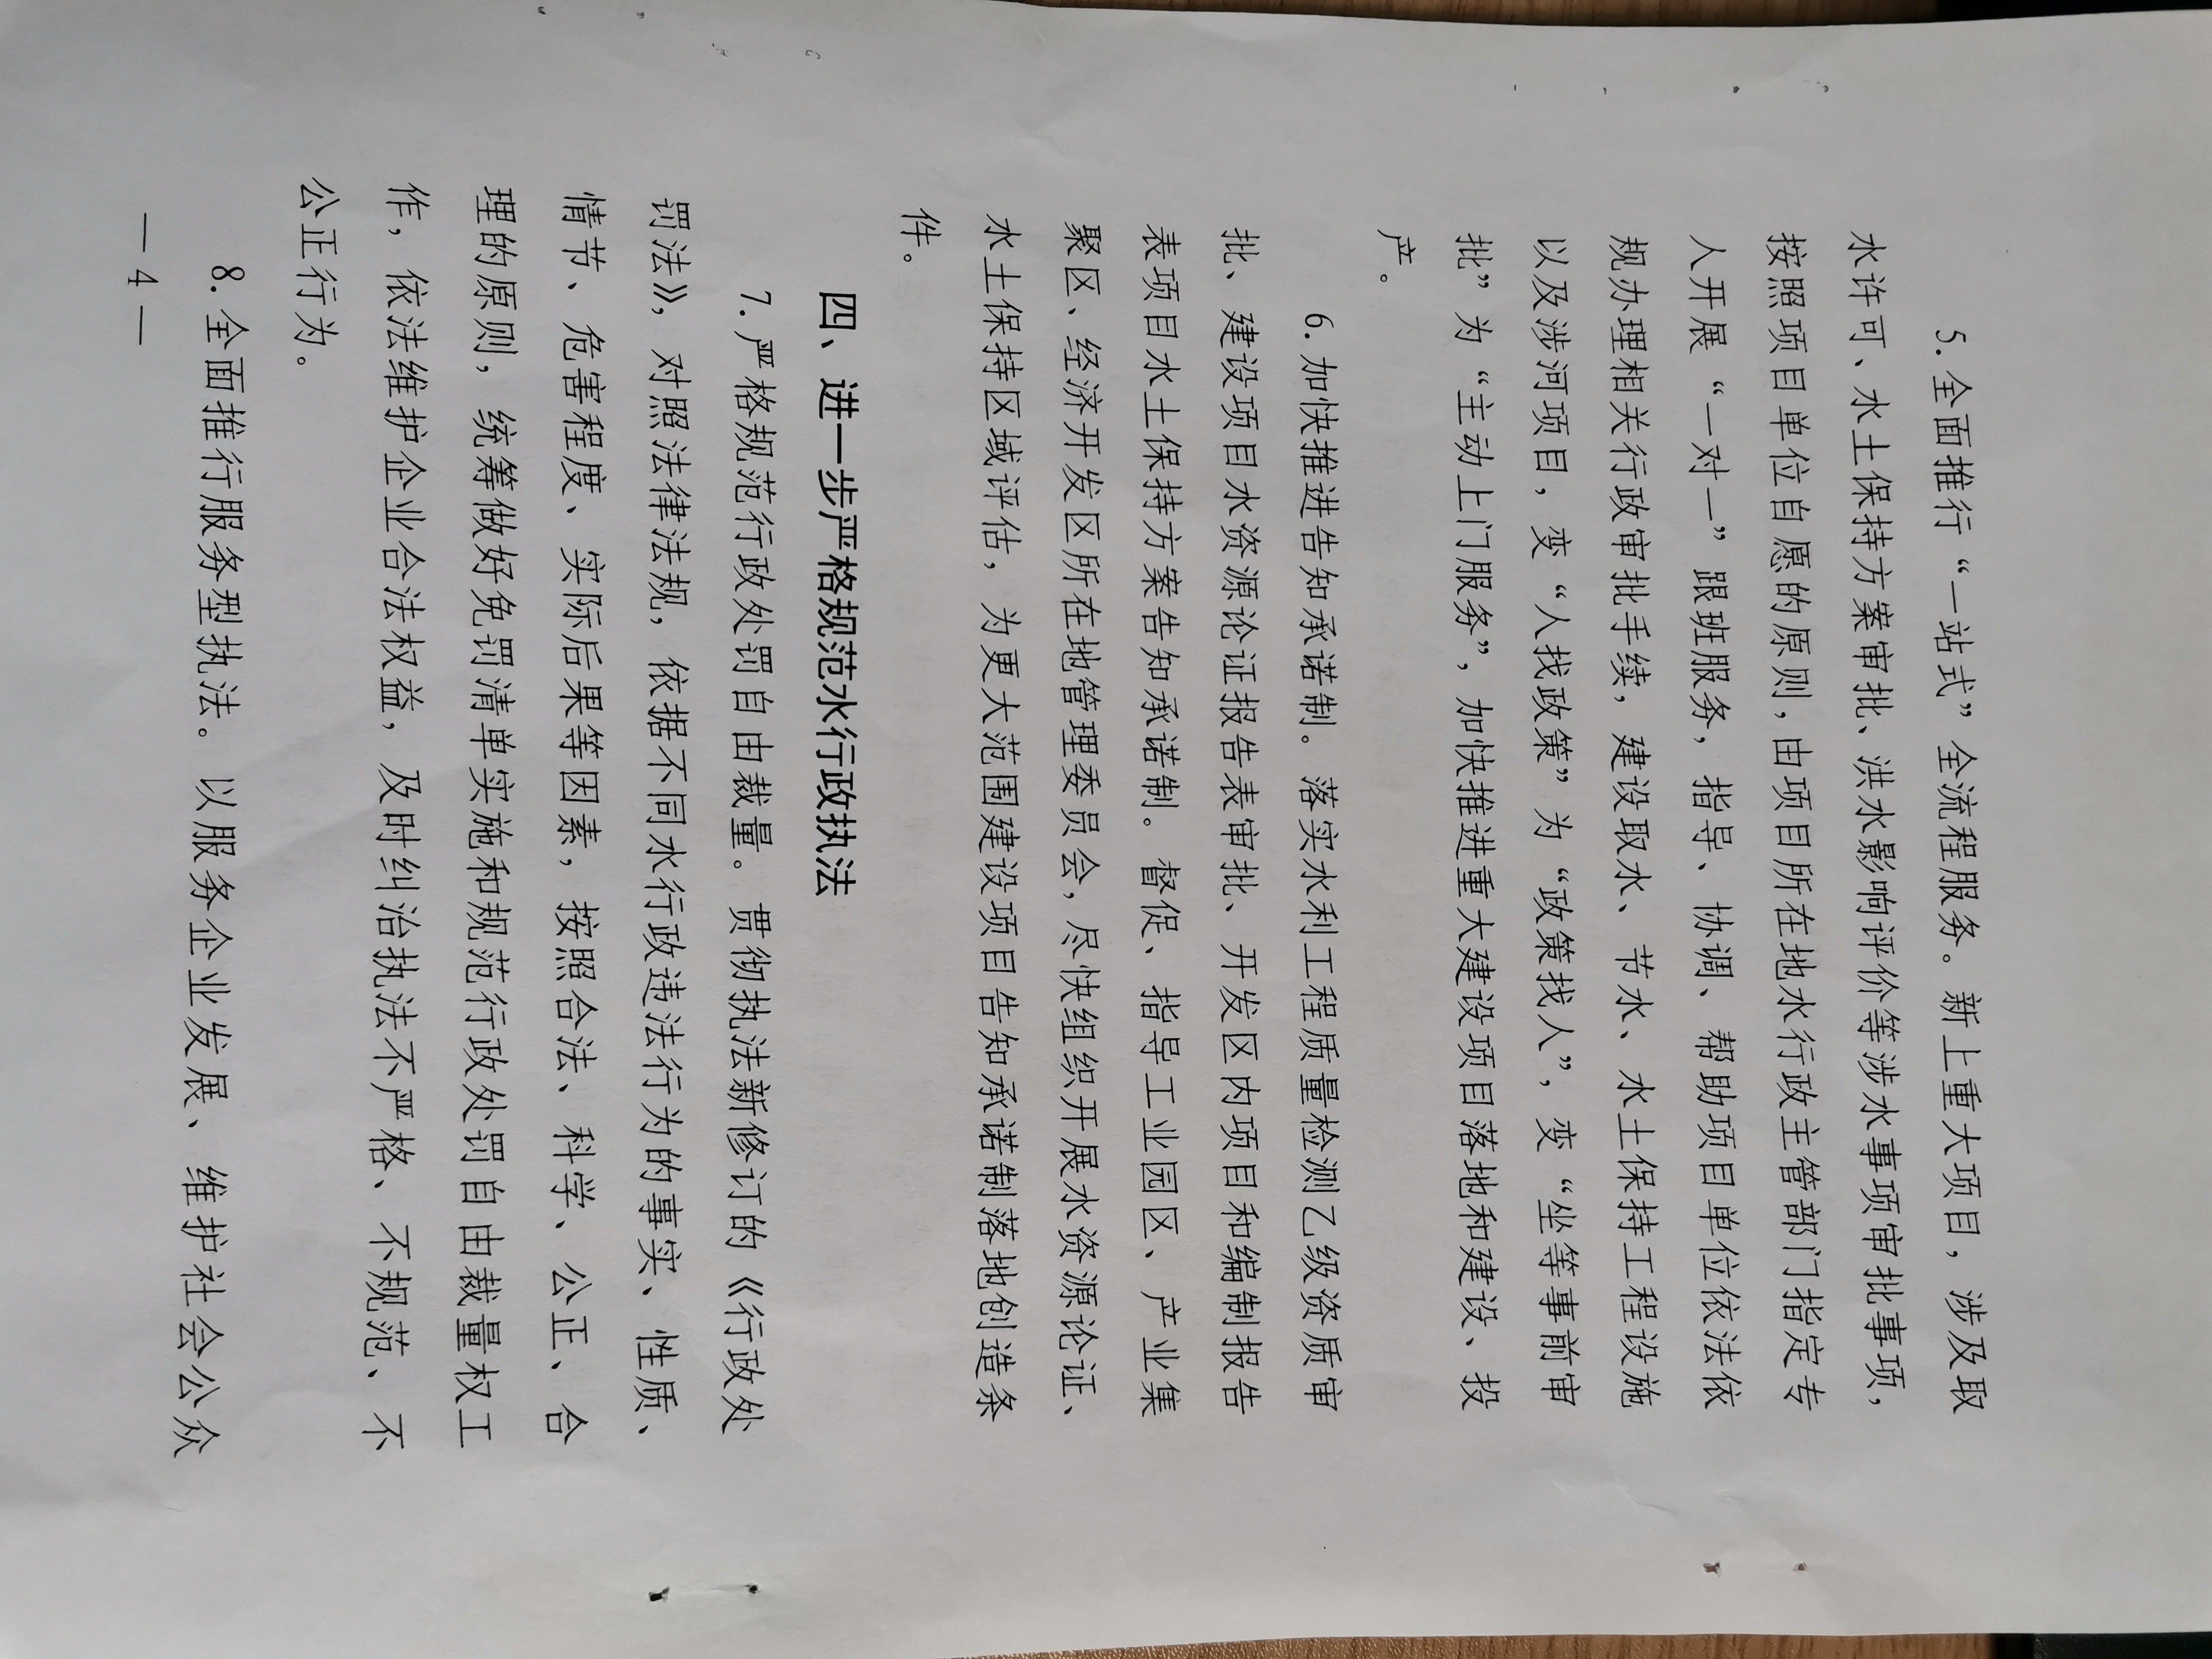 5.全面推行“一站式”全流程服务。新上重大项目，涉及取
水许可、水土保持方案审批、洪水影响评价等涉水事项审批事项，
按照项目单位自愿的原则，由项目所在地水行政主管部门指定专
人开展“一对一”跟班服务，指导、协调、帮助项目单位依法依
规办理相关行政审批手续，建设取水、节水、水土保持工程设施
以及涉河项目，变“人找政策”为“政策找人”，变“坐等事前审
批”为“主动上门服务”，加快推进重大建设项目落地和建设、投
产。
6.加快推进告知承诺制。落实水利工程质量检测乙级资质审
批、建设项目水资源论证报告表审批、开发区内项目和编制报告
表项目水土保持方案告知承诺制。督促、指导工业园区、产业集
聚区、经济开发区所在地管理委员会，尽快组织开展水资源论证、
水土保持区域评估，为更大范围建设项目告知承诺制落地创造条
件。
四、进一步严格规范水行政执法
7.严格规范行政处罚自由裁量。贯彻执法新修订的《行政处
罚法》，对照法律法规，依据不同水行政违法行为的事实、性质、
情节、危害程度、实际后果等因素，按照合法、科学、公正、合
理的原则，统筹做好免罚清单实施和规范行政处罚自由裁量权工
作，依法维护企业合法权益，及时纠治执法不严格、不规范、不
公正行为。
8.全面推行服务型执法。以服务企业发展、维护社会公众
— 4 —